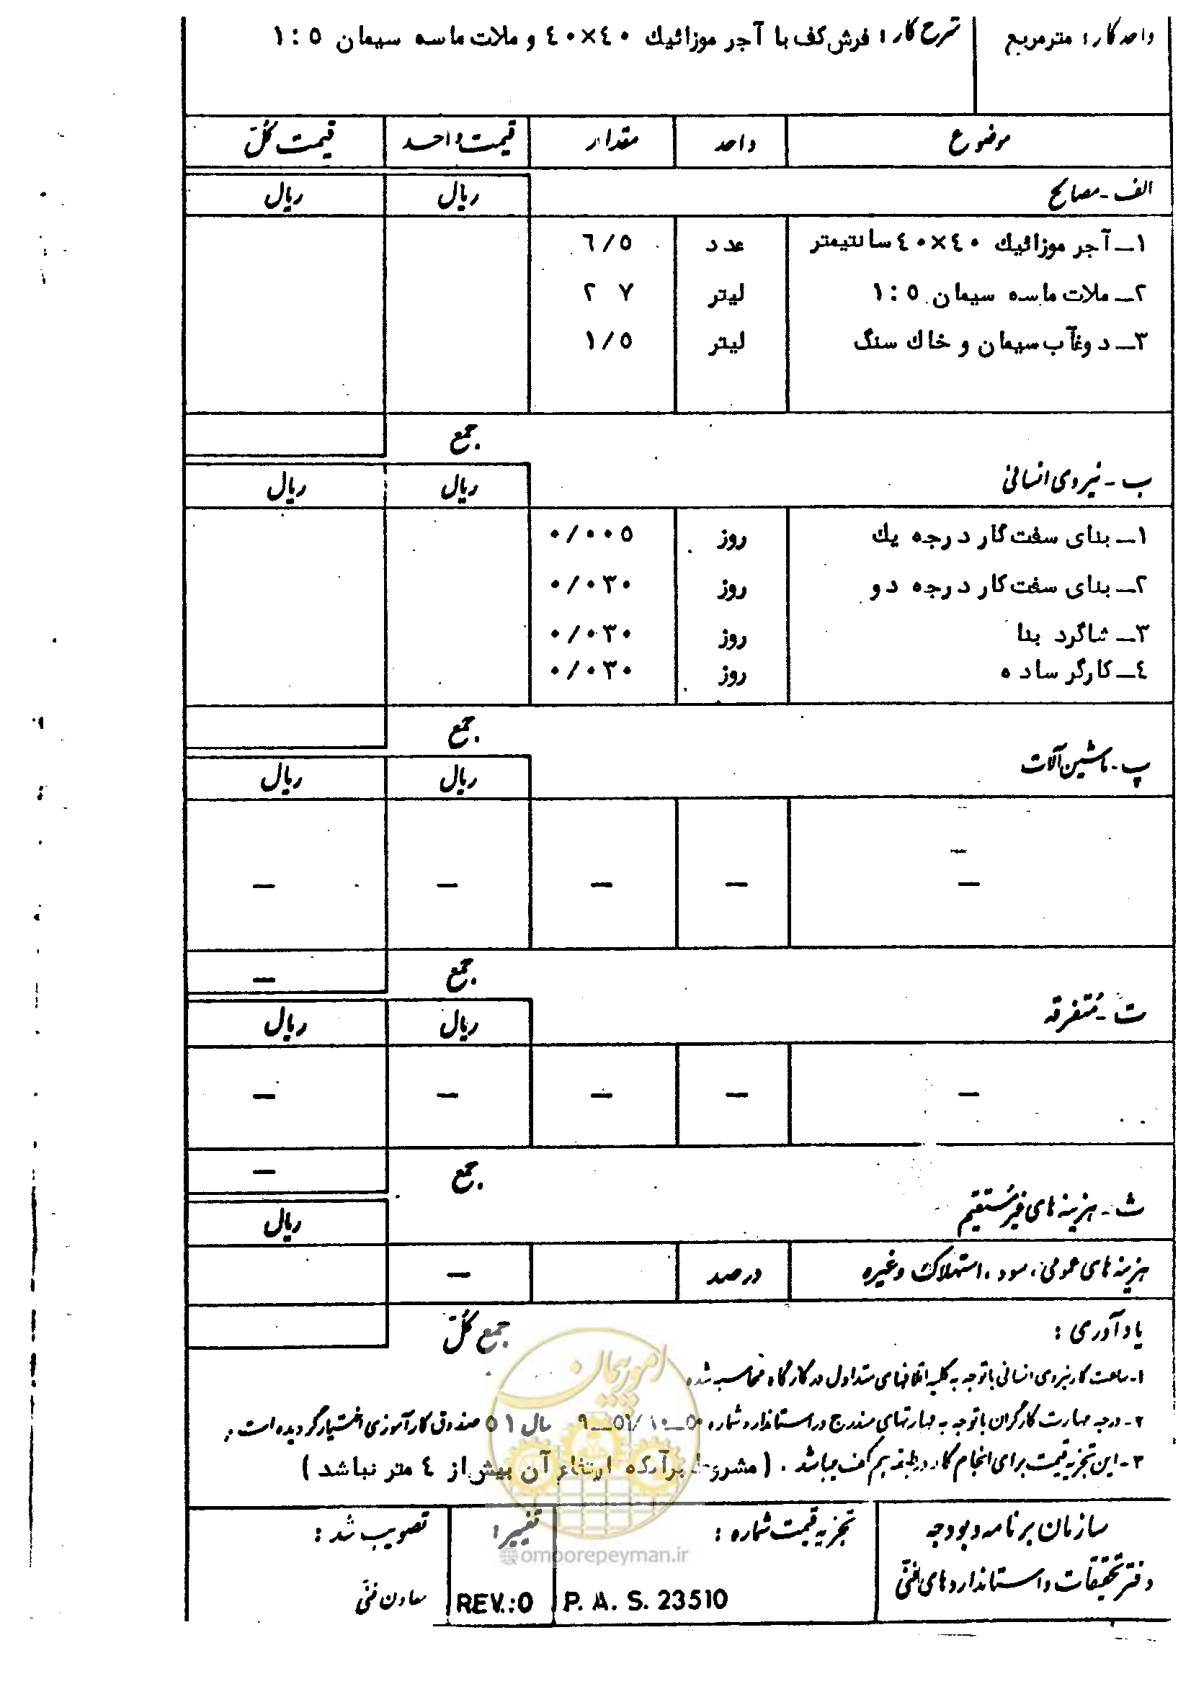 واحد کار: مترمربع    شرح کار: فرش کف با آجر موزائیك ٤٠×٤٠ و ملات ماسه سیمان ۵:۱
موضوع    واحد    مقدار    قیمت واحد    قیمت کل
الف - مصالح    ریال    ریال
۱ـ آجر موزائیك ٤٠×٤٠ سانتیمتر    عدد    ٦/۵
۲ـ ملات ماسه سیمان ۵:۱    لیتر    ۲۷
۳ـ دوغآب سیمان و خاك سنگ    لیتر    ۱/۵
جمع
ب - نیروی انسانی    ریال    ریال
۱ـ بنای سفت کار درجه یك    روز    ۰/۰۰۵
۲ـ بنای سفت کار درجه دو    روز    ۰/۰۳۰
۳ـ شاگرد بنا    روز    ۰/۰۳۰
٤ـ کارگر ساده    روز    ۰/۰۳۰
جمع
پ - ماشین آلات    ریال    ریال
—
—    —    —    —    —
جمع    —
ت - متفرقه    ریال    ریال
—    —    —    —    —
جمع    —
ث - هزینه های غیرمستقیم    ریال
هزینه های عمومی، سود، استهلاک وغیره    درصد    —
جمع کل
یادآوری:
۱- ساعت کار نیروی انسانی با توجه به کلیه اتلافهای متداول در کارگاه محاسبه شده
۲- درجه مهارت کارگران با توجه به مهارتهای مندرج در استاندارد شماره ۵۰ـ۱۰/۵۱ـ۹ سال ۵۱ صندوق کارآموزی اختیار گردیده است.
۳- این تجزیه قیمت برای انجام کار در طبقه هم کف میباشد. (مشروط برآنکه ارتفاع آن بیش از ٤ متر نباشد)
سازمان برنامه و بودجه
دفتر تحقیقات و استانداردهای فنی
تجزیه قیمت شماره:
P. A. S. 23510
تغییر:
REV.:0
تصویب شد:
معاون فنی
امور پیمان
@omoorepeyman.ir